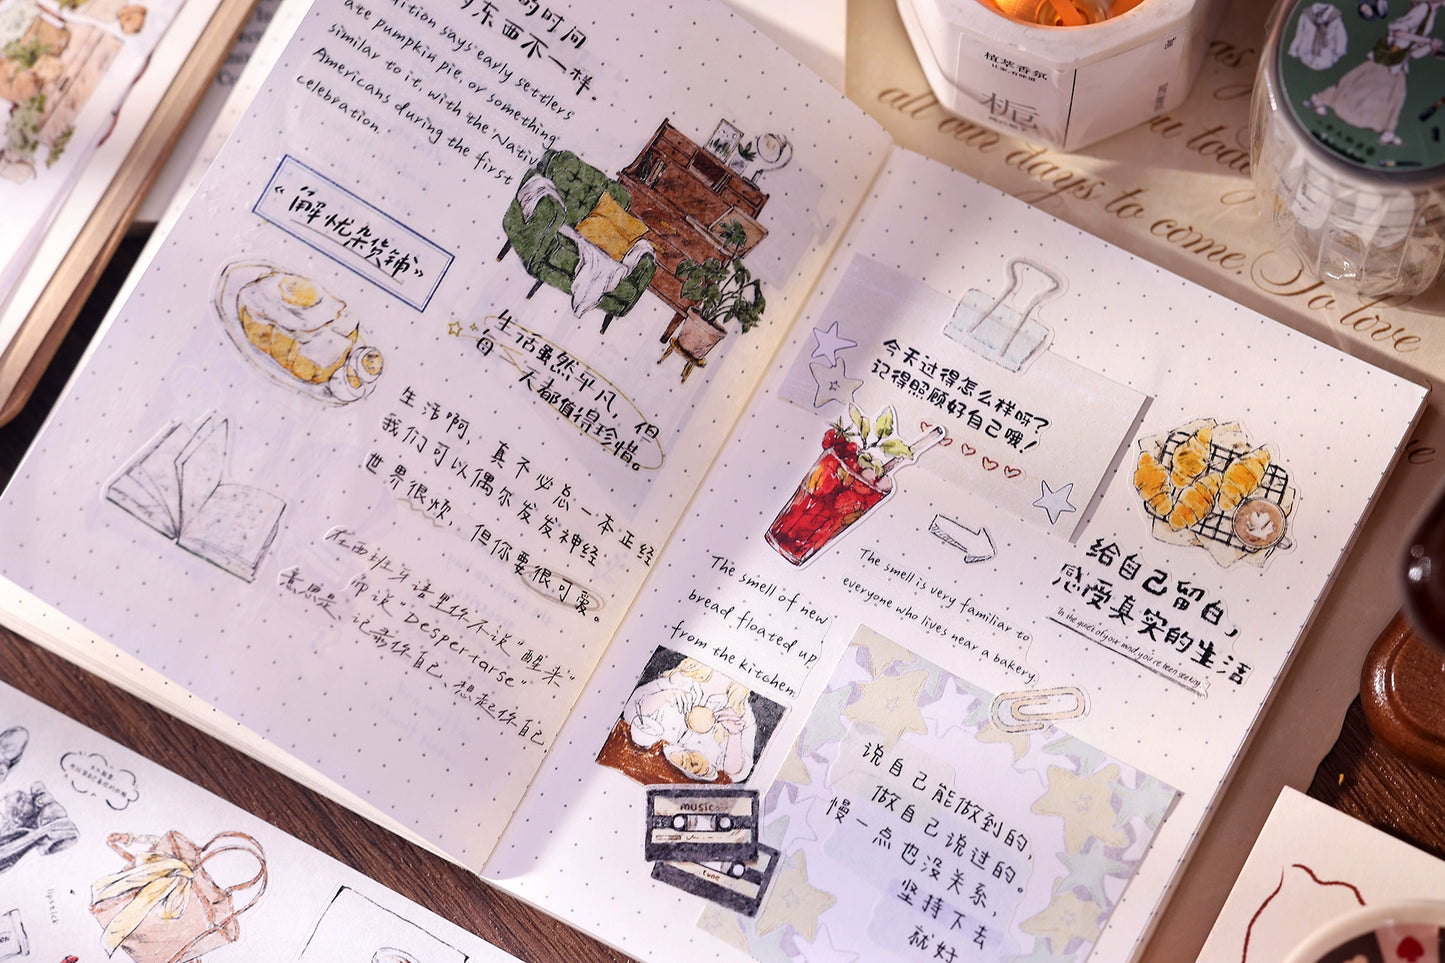 的时间
的东西不一样.
dition says early settlers
ate pumpkin pie, or something
similar to it, with the Native
Americans during the first
celebration.
“解忧杂货铺”
生活虽然平凡，但
每一天都值得珍惜。
生活啊，真不必总一本正经
我们可以偶尔发发神经
世界很烦，但你要很可爱。
在西班牙语里你不说“醒来”
而说“Despertarse”
意思是、记录你自己、想起你自己.
今天过得怎么样呀?
记得照顾好自己哦!
The smell is very familiar to
everyone who lives near a bakery
The smell of new
bread floated up
from the kitchen.
给自己留白，
感受真实的生活
In the quiet of your mind, you're been seeking
music
tune
说自己能做到的，
做自己说过的。
慢一点也没关系，
坚持下去
就好
植萃香氛
栀
all our days to come. So love
you today
lipstick